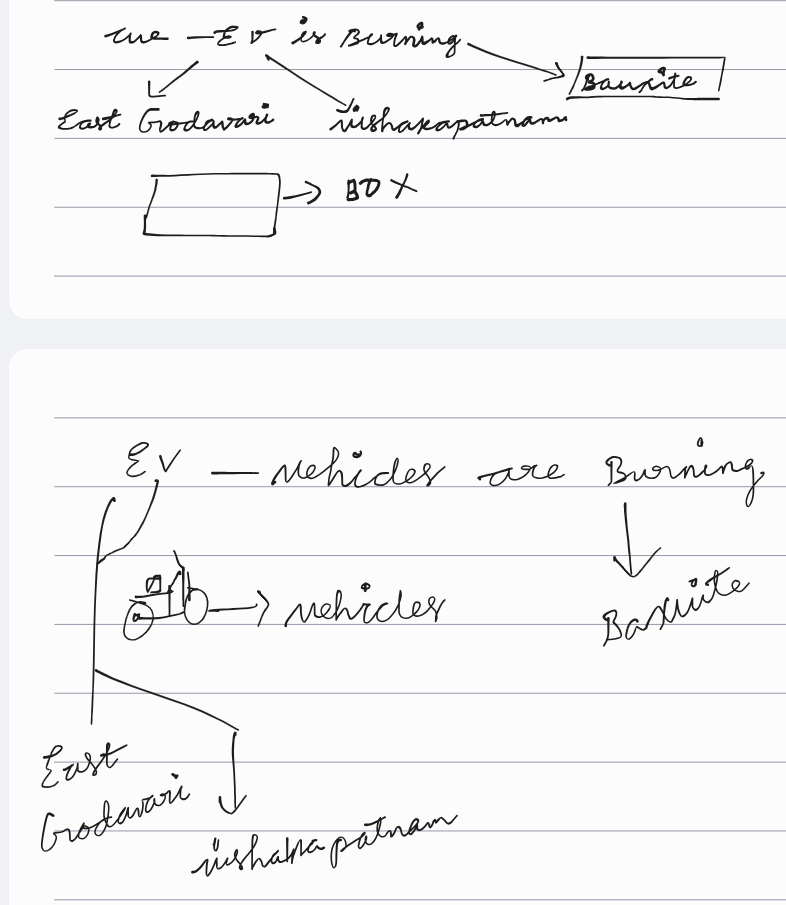 The - EV is Burning
Bauxite
East Godavari vishakapatnam
BOX
EV - vehicles are Burning
vehicles
Baxuite
East
Godavari
vishakapatnam